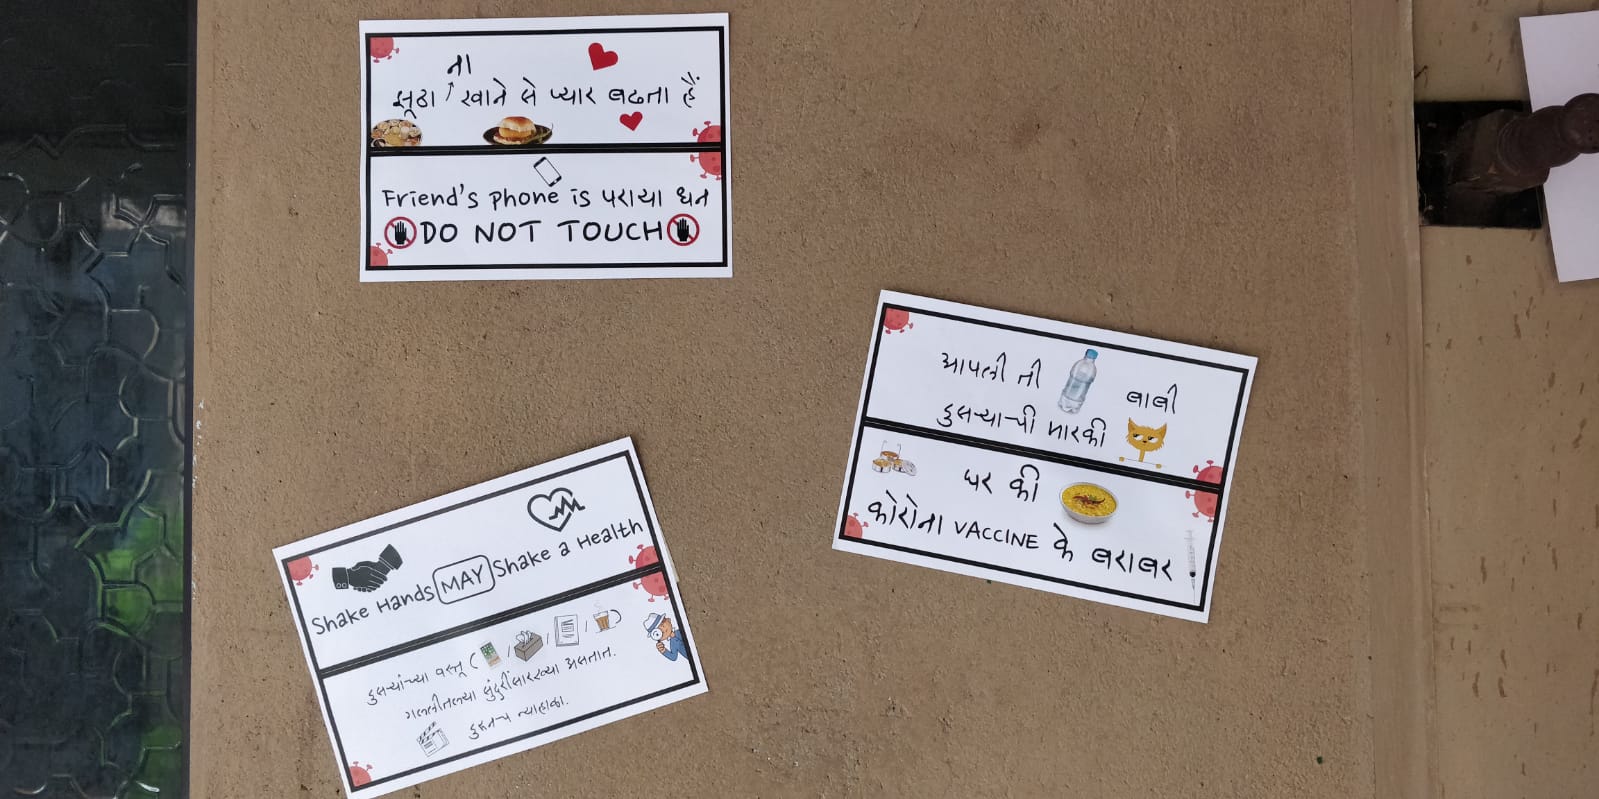 ना
झूठा खाने से प्यार बढता हैं
Friend's phone is पराया धन
DO NOT TOUCH
आपली ती बाबी
दुसऱ्याची मारकी
घर की
कोरोना VACCINE के बराबर
Shake Hands MAY Shake a Health
दुसऱ्यांच्या वस्तू ( / / /
गल्लीतल्या सुंदुरींसारख्या असतात.
दुरूनच न्याहाळा.